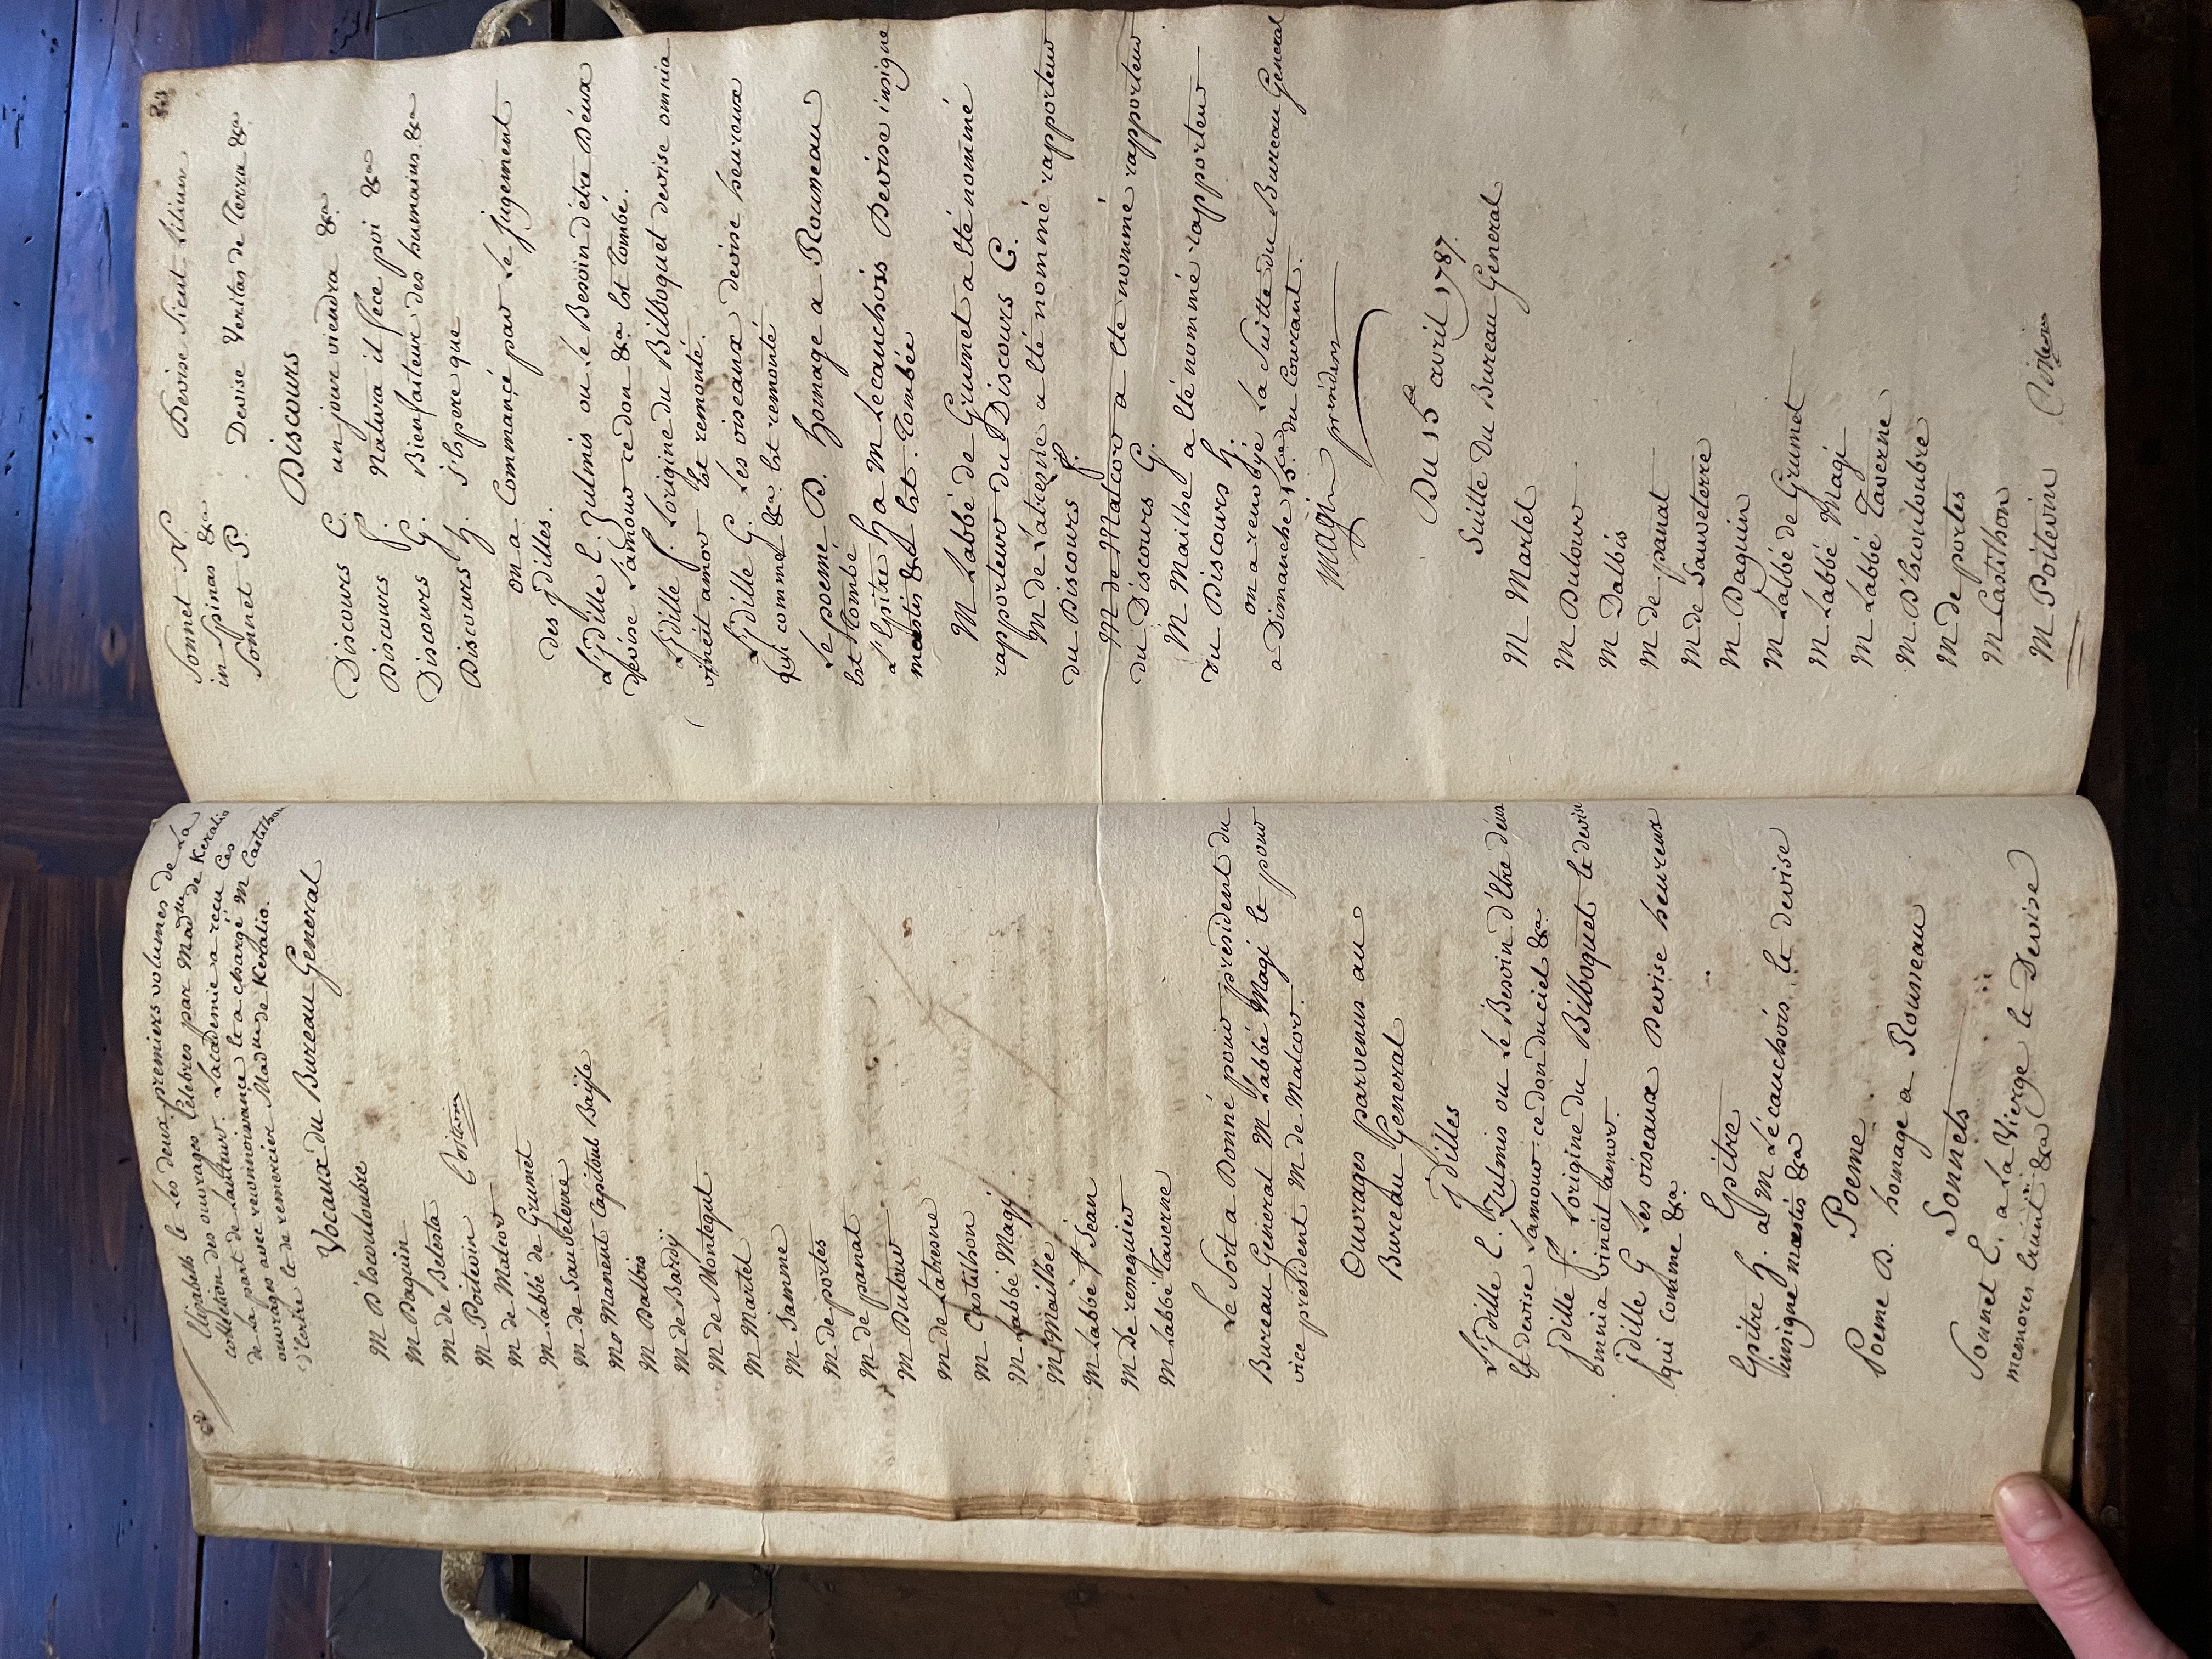 Elizabeth le Les deux premiers volumes de La
collection des ouvrages celebres par Mad.me de Keralio
de la part de Lauteur. Lacademie a recu Ces
ouvrages avec reconnoissance et a chargé M Castilhon
d'Ecrire et de remercier Mad.me de Keralio.
Vocaux du Bureau General
M D'Escouloubre
M Daguin
M de Belesta
M Poitevin
M de Malcor
M Labbé de Grumet
M de Sauveterre
M o Manent Capitoul Bayle
M Dalbis
M de Bardÿ
M de Montegut
M Martel
M Jamme
M de portes
M de panat
M Dutour
M de Latresne
M Castilhon
M Labbé Magi
M Mailhe
M Labbé St Jean
M De remeguier
M Labbé Taverne
Le Sort a Donné pour president du
Bureau General M Labbé Magi et pour
vice president M de Malcor.
Ouvrages parvenus au
Bureau General
jdilles
L'jdille E. Zulmis ou Le Besoin d'Etre deux
et devise Lamour ce don du ciel &a
jdille f. Lorigine du Bilboquet et devise
omnia vincit amor.
jdille G Les oiseaux Devise heureux
qui comme &a
Epitre
Epitre h. a M Lécauchois et devise
insigne mæstis &a
Poeme
Poeme B. homage a Rousseau
Sonnets
Sonnet E. a La Vierge et Devise
memores &a
Sonnet N. Devise Sicut Lilium
in Spinas &a
Sonnet P. Devise Veritas de Terra &a
Discours
Discours C. un jour viendra &a
Discours f. Natura il fece poi &a
Discours G. Bienfaiteur des humains &a
Discours h. j'Espere que
on a Commancé par Le jugement
des jdilles.
L'jdille E. Zulmis ou Le Besoin d'etre Deux
devise Lamour ce don &a Est Tombé.
L'jdille f. Lorigine du Bilboquet devise omnia
vincit amor Est remonté.
L'jdille G. Les oiseaux devise heureux
qui comme &a Est remonté
Le poeme B. homage a Rousseau
Est Tombé
L'Epitre h a M Lecauchois Devise insigne
mæstis &a Est Tombée
M Labbé de Grumet a Eté nommé
rapporteur du Discours C.
M de Latresne a Eté nommé rapporteur
du Discours f.
M de Malcor a Eté nommé rapporteur
du Discours G.
M Mailhe a Eté nommé rapporteur
du Discours h.
on a renvoyé La Suitte du Bureau General
a Dimanche 15.e du Courant.
Magi president
Du 15e avril 1787.
Suitte Du Bureau General
M Martel
M Dutour
M Dalbis
M de panat
M de Sauveterre
M Daguin
M Labbé de Grumet
M Labbé Magi
M Labbé Taverne
M D'Escouloubre
M de portes
M Castilhon
M Poitevin